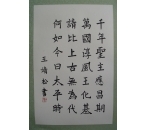 千年聖主應昌期
萬國淳風王化基
請比上古無為代
何如今日太平時